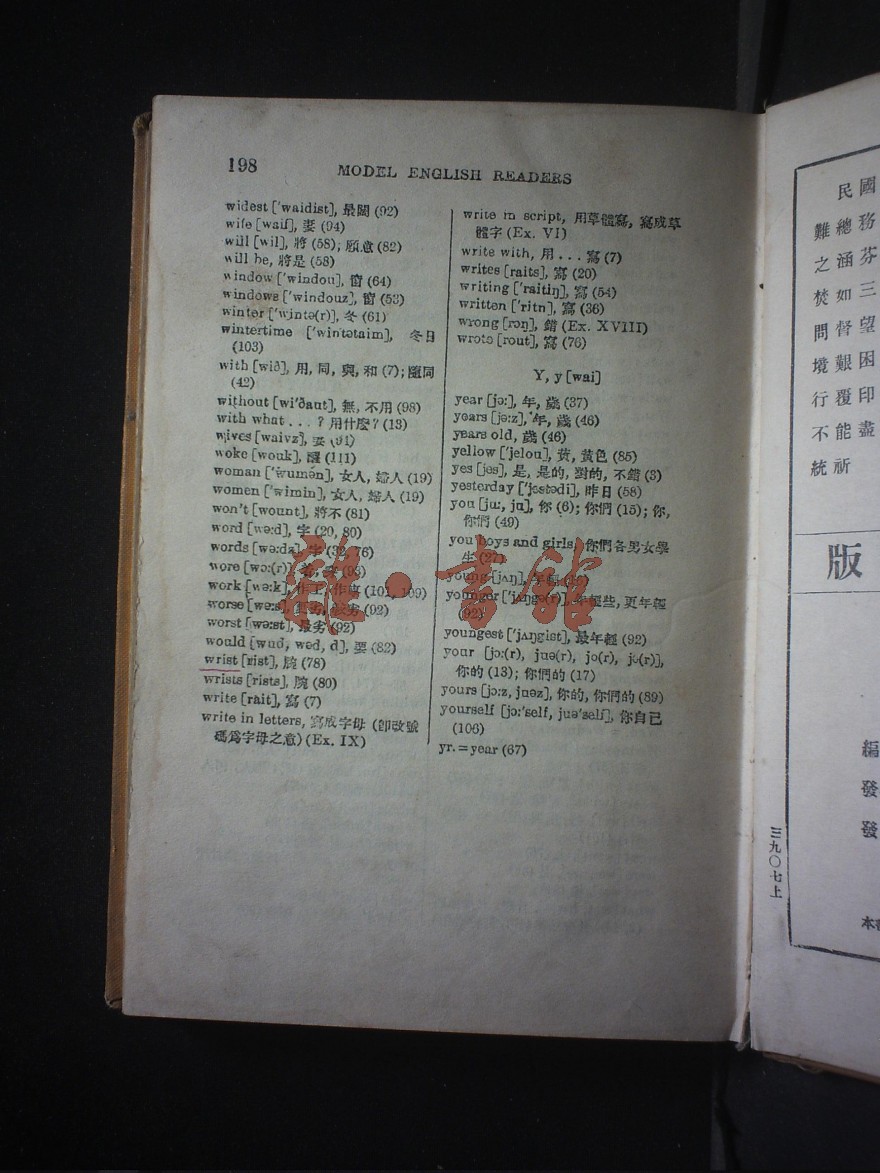 198
MODEL ENGLISH READERS
widest ['waidist], 最闊 (92)
wife [waif], 妻 (94)
will [wil], 將 (58); 願意 (82)
will be, 將是 (58)
window ['windou], 窗 (64)
windows ['windouz], 窗 (53)
winter ['wintə(r)], 冬 (61)
wintertime ['wintətaim], 冬日
(103)
with [wið], 用, 同, 與, 和 (7); 隨同
(42)
without [wi'ðaut], 無, 不用 (98)
with what . . . ? 用什麼? (13)
wives [waivz], 妻 (91)
woke [wouk], 醒 (111)
woman ['wumən], 女人, 婦人 (19)
women ['wimin], 女人, 婦人 (19)
won't [wount], 將不 (81)
word [wə:d], 字 (20, 80)
words [wə:dz], 字 (32, 76)
wore [wɔ:(r)], (93)
work [wə:k], 作工, 作事 (101, 109)
worse [wə:s], (92)
worst [wə:st], 最劣 (92)
would [wud, wəd, d], 要 (82)
wrist [rist], 腕 (78)
wrists [rists], 腕 (80)
write [rait], 寫 (7)
write in letters, 寫成字母 (卽改號
碼爲字母之意) (Ex. IX)
write in script, 用草體寫, 寫成草
體字 (Ex. VI)
write with, 用 . . . 寫 (7)
writes [raits], 寫 (20)
writing ['raitiŋ], 寫 (54)
written ['ritn], 寫 (36)
wrong [rɔŋ], 錯 (Ex. XVIII)
wrote [rout], 寫 (76)
Y, y [wai]
year [jə:], 年, 歲 (37)
years [jə:z], 年, 歲 (46)
years old, 歲 (46)
yellow ['jelou], 黃, 黃色 (85)
yes [jes], 是, 是的, 對的, 不錯 (3)
yesterday ['jestədi], 昨日 (58)
you [ju:, ju], 你 (6); 你們 (15); 你,
你們 (49)
you boys and girls, 你們各男女學
生 (27)
young [jʌŋ], 年輕
younger ['jʌŋgə(r)], 年輕些, 更年輕
(92)
youngest ['jʌŋgist], 最年輕 (92)
your [jɔ:(r), juə(r), jo(r), jə(r)],
你的 (13); 你們的 (17)
yours [jɔ:z, juəz], 你的, 你們的 (89)
yourself [jɔ:'self, juə'self], 你自己
(106)
yr. = year (67)
雜·書館
國務芬三望困印盡
民總涵如督艱覆能祈
難之焚問境行不統
版
編
發
發
三九〇七上
本